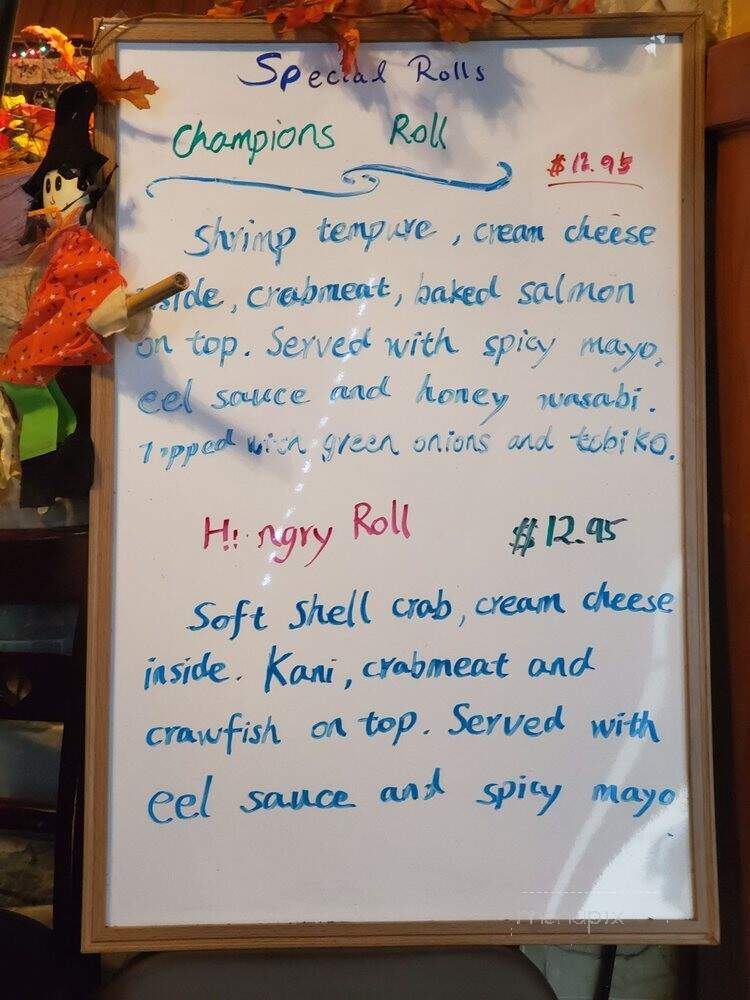 Special Rolls
Champions Roll
$12.95
Shrimp tempure, cream cheese
inside, crabmeat, baked salmon
on top. Served with spicy mayo,
eel sauce and honey wasabi.
Topped with green onions and tobiko.
Roll
$12.95
Soft Shell crab, cream cheese
inside. Kani, crabmeat and
crawfish on top. Served with
eel sauce and spicy mayo.
menupix